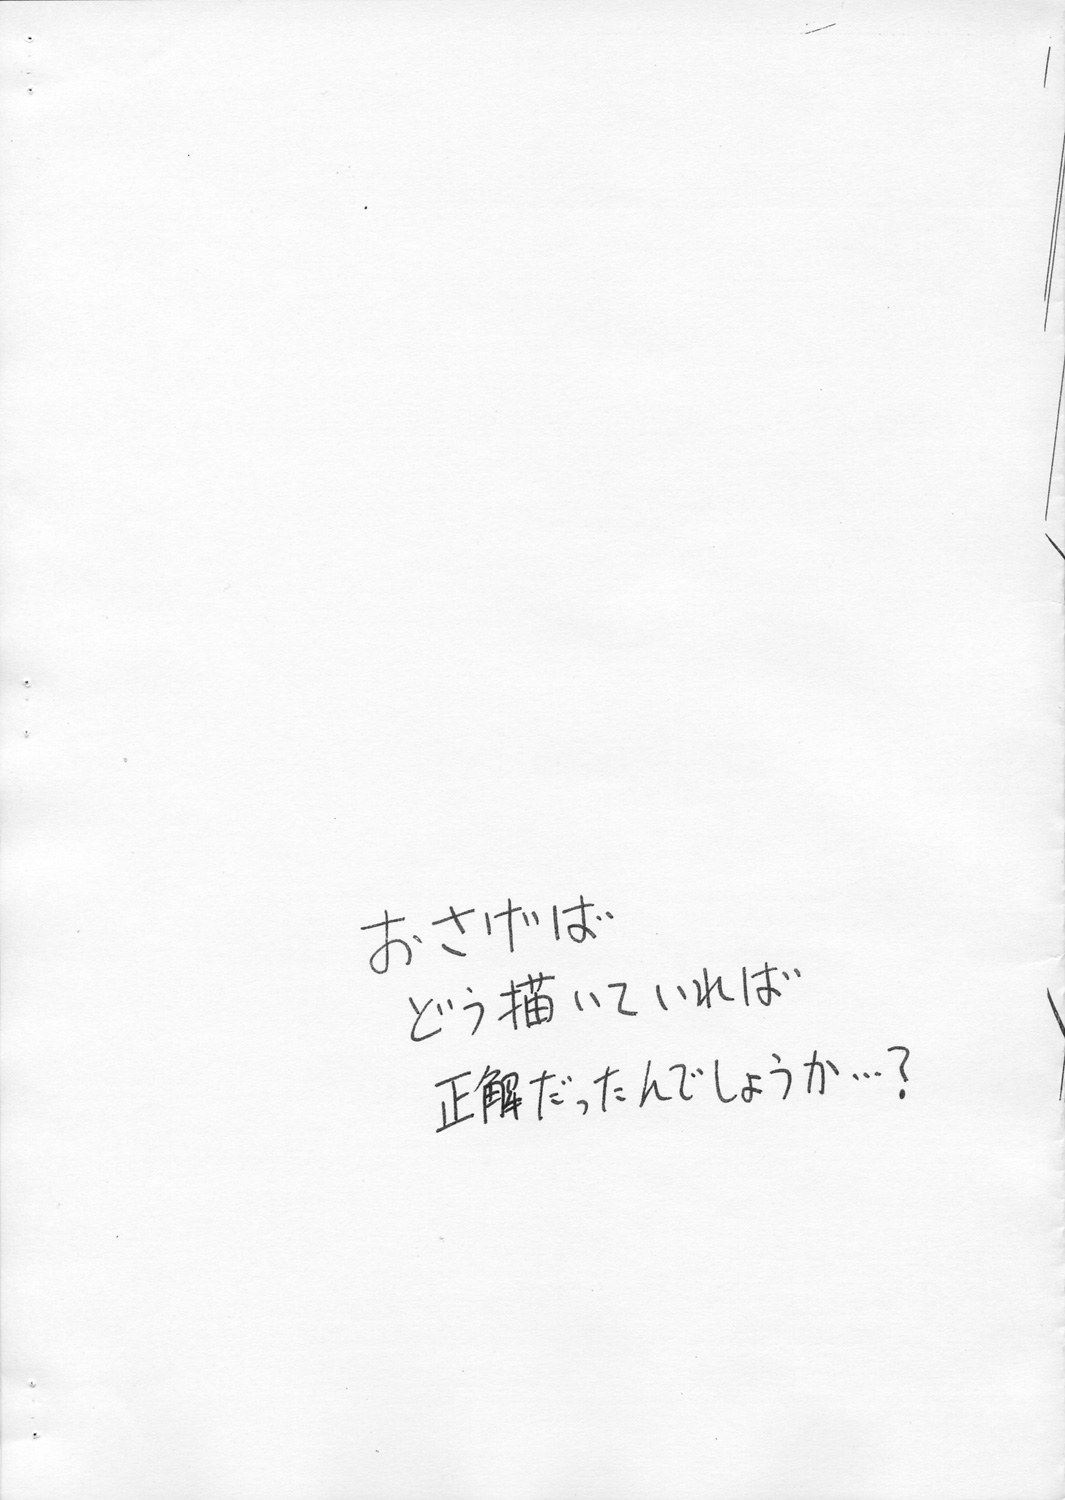 おさげば
どう描いていれば
正解だったんでしょうか…?